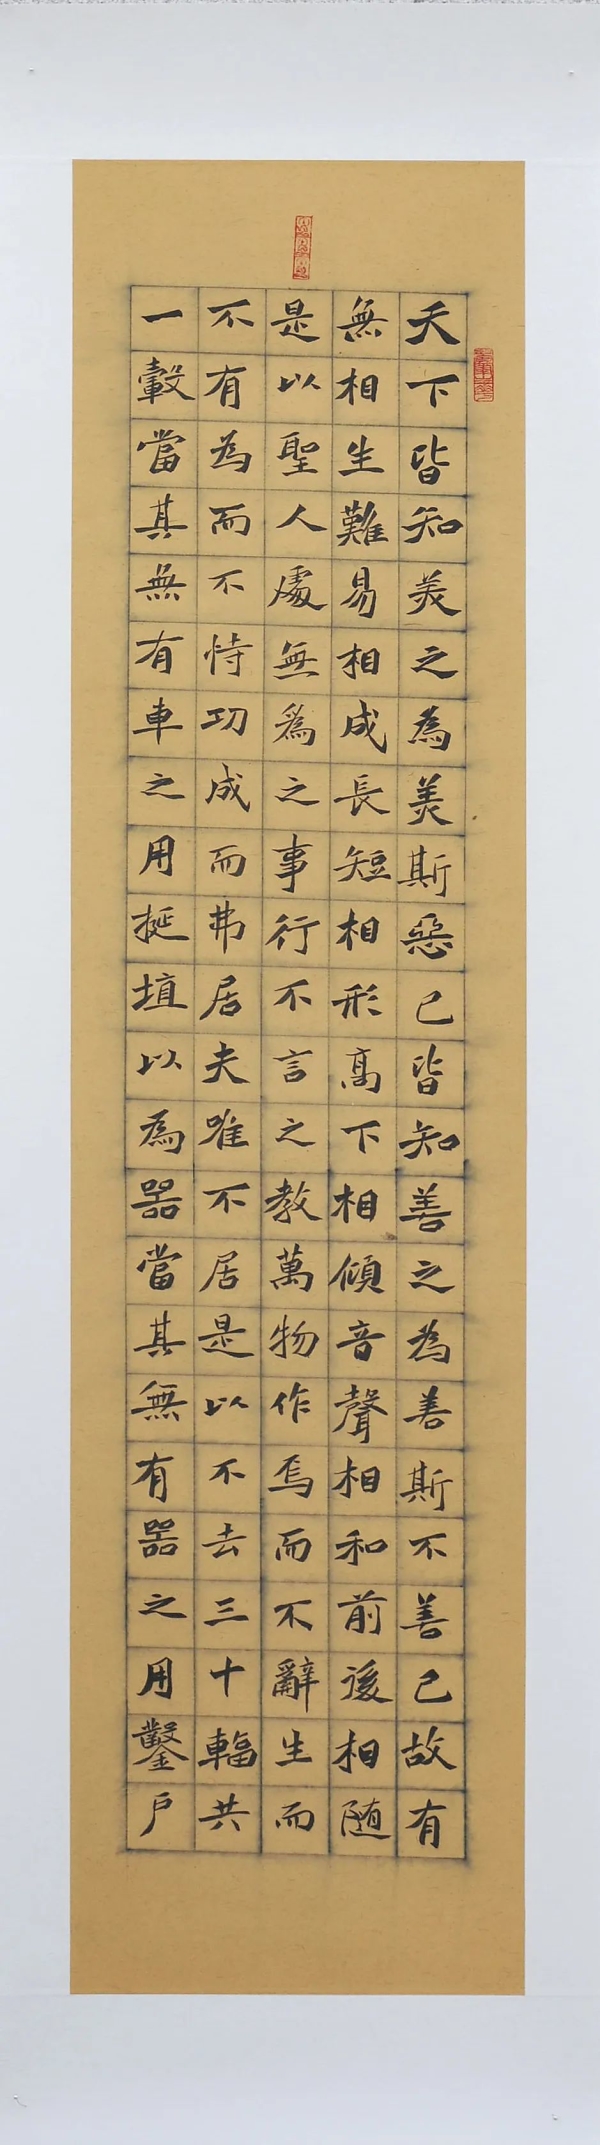 天下皆知美之為美斯惡已皆知善之為善斯不善已故有
無相生難易相成長短相形高下相傾音聲相和前後相随
是以聖人處無為之事行不言之教萬物作焉而不辭生而
不有為而不恃功成而弗居夫唯不居是以不去三十輻共
一轂當其無有車之用挻埴以為器當其無有器之用鑿戶